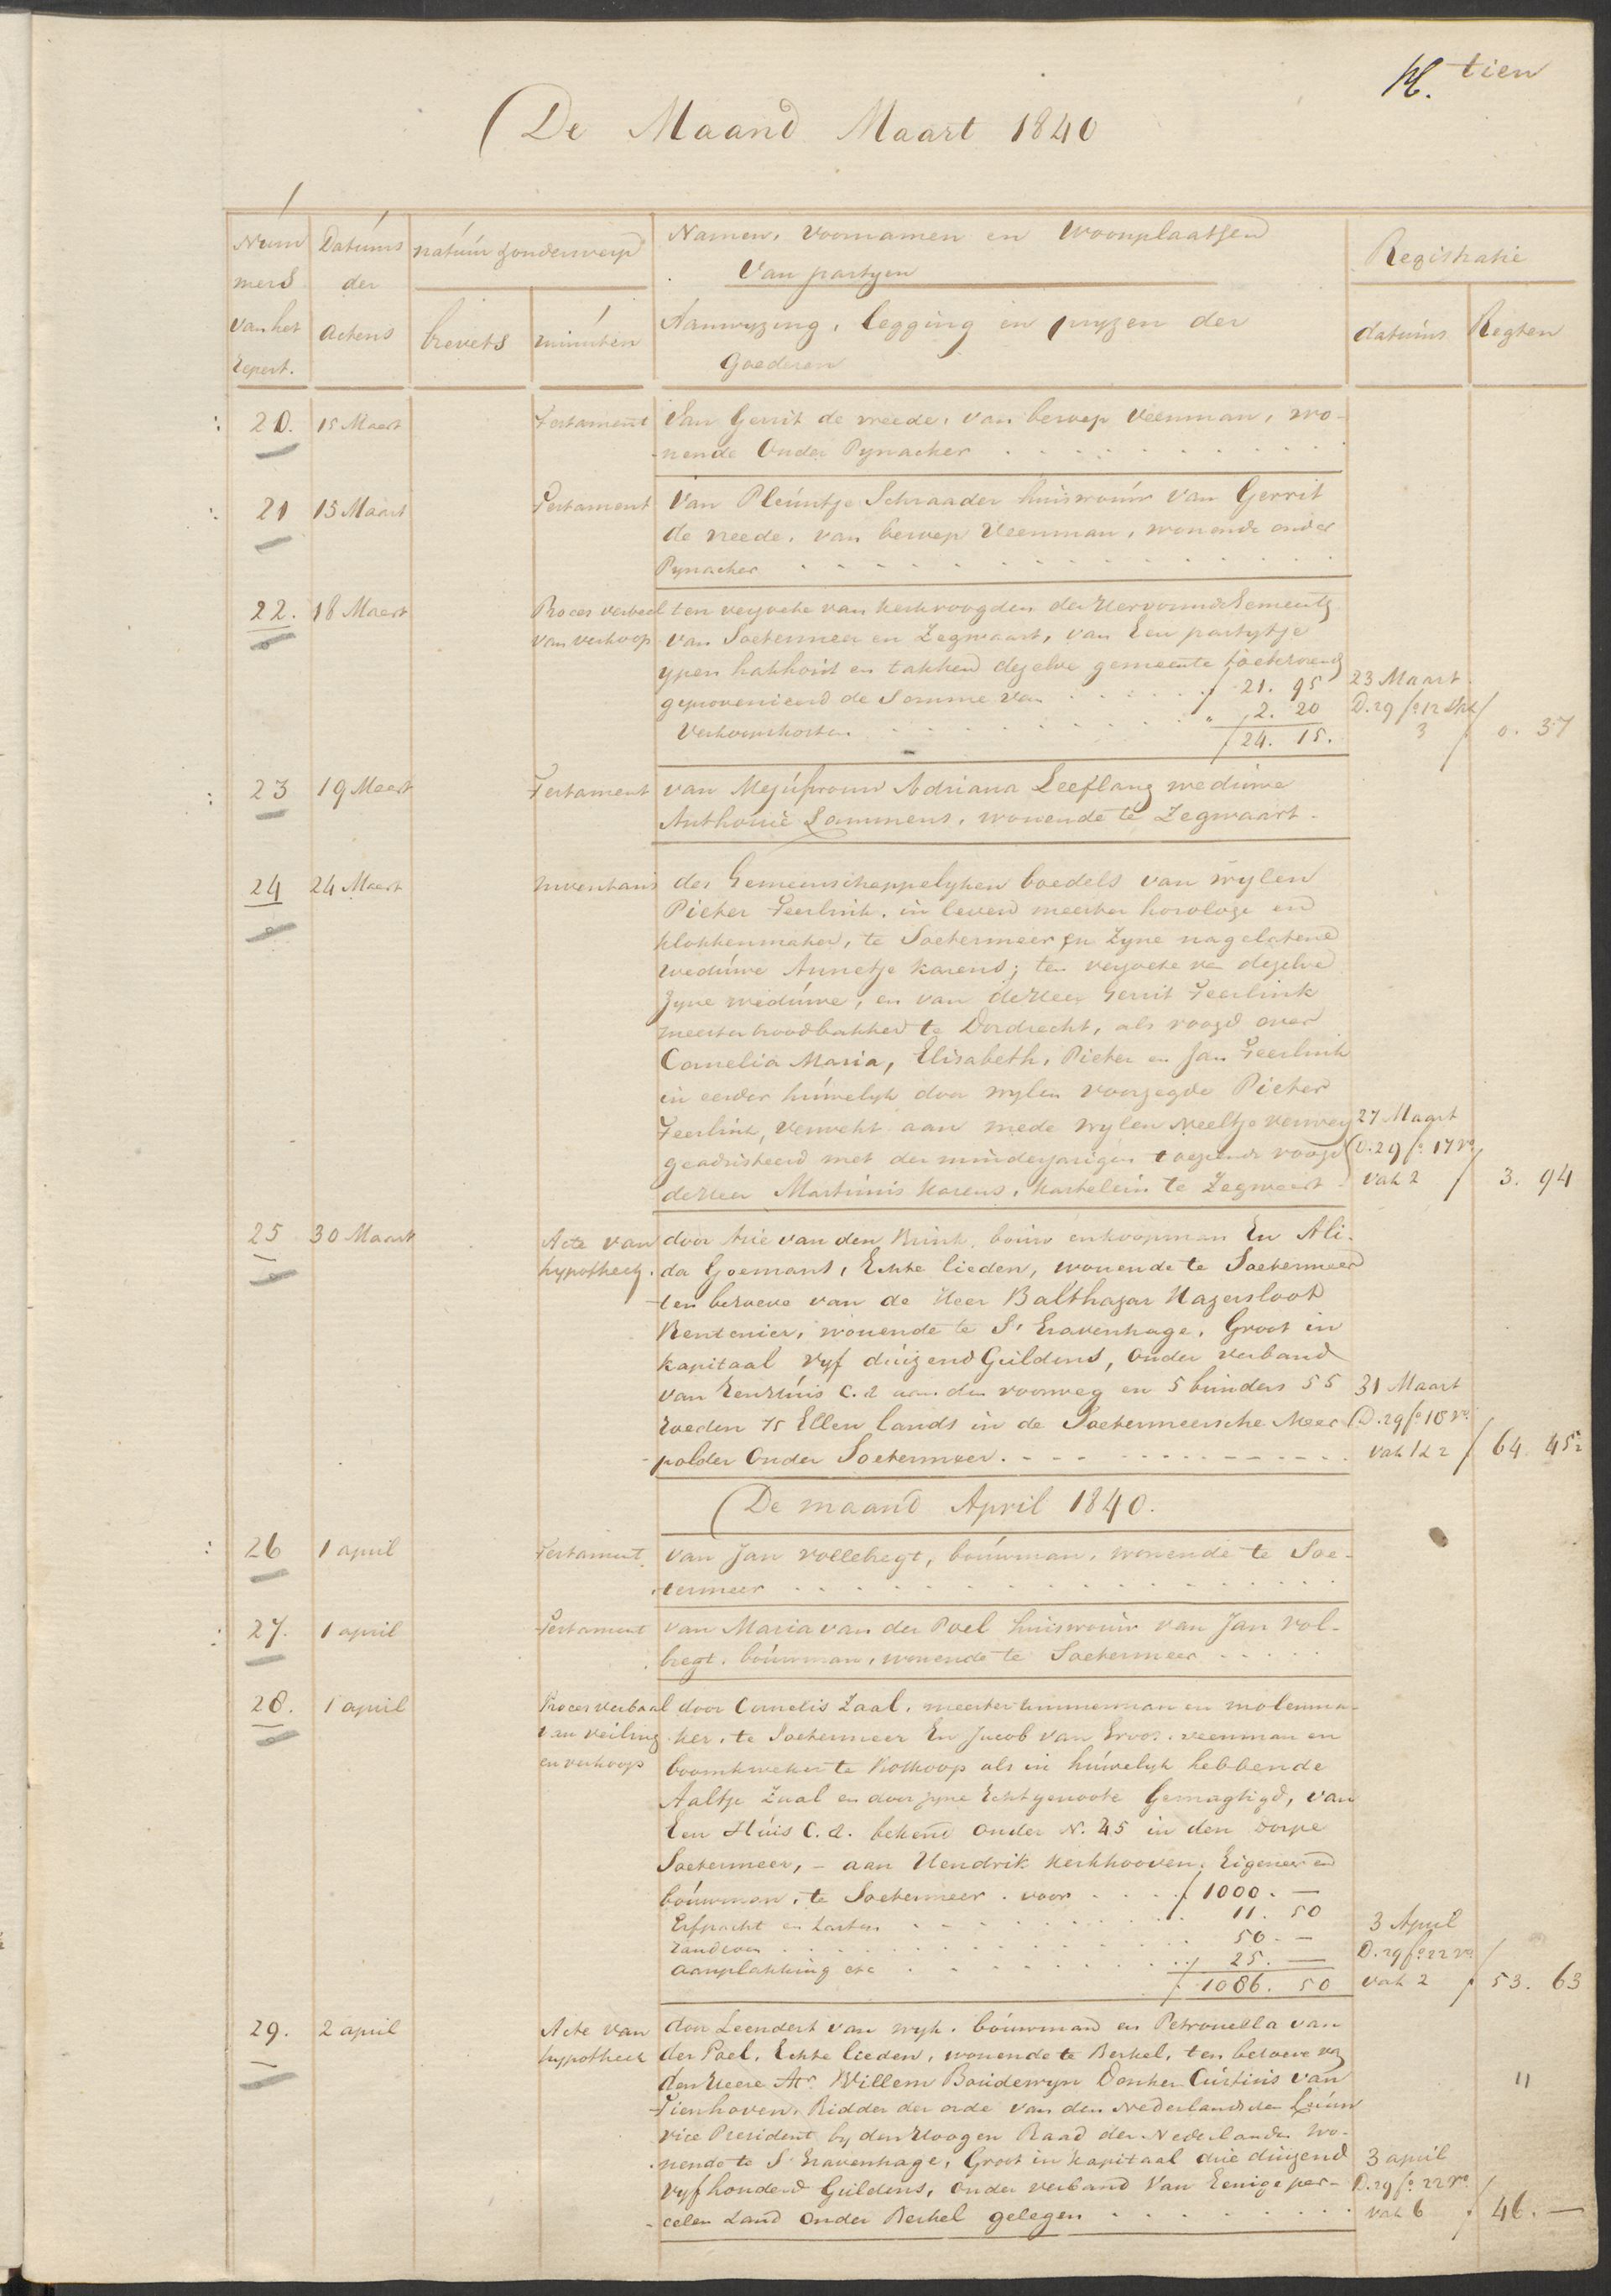 tien
De Maand Maart 1840
Num
mers
van het
repert.
Datums
der
actens
natuur & onderwerp
brevets
minuten
Namen, Voornamen en Woonplaatsen
Van partyen
Aanwyzing, legging en pryzen der
Goederen
Registratie
datums
Regten
20. 15 Maart Testament Van Gerrit de vreede, van beroep veenman, wo-
nende Onder Pynacker
21 15 Maart Testament Van Pleuntje Schraader huisvrouw van Gerrit
de vreede, van beroep Veenman, wonende onder
Pynacker
22. 18 Maart Proces verbaal ten verzoeke van kerkvoogden der Hervormde Gemeente
van verkoop van Soetermeer en Zegwaart, van Een partytje
ypen hakhout en takken dezelve gemeente toebehorend
geprovenieerd de Somme van f 21. 95 23 Maart
Verkoopskosten " 2. 20 D. 29 fo. 12
f 24. 15. 3 f 0. 37
23 19 Maart Testament van Mejufvrouw Adriana Leeflang weduwe
Anthonie Lammens, wonende te Zegwaart.
24 24 Maart Inventaris des Gemeenschappelyken boedels van wylen
Pieter Teerlink, in leven meester horologe en
klokkenmaker, te Soetermeer en Zyne nagelatene
weduwe Annetje Karens; ten verzoeke van dezelve
Zyne weduwe, en van de Heer Gerrit Teerlink
meester broodbakker te Dordrecht, als voogd over
Cornelia Maria, Elisabeth, Pieter en Jan Teerlink
in eerder huwelyk door wylen voorzegde Pieter
Teerlink, verwekt aan mede wylen Neeltje verwey 27 Maart
geadsisteerd met der minderjarigen toeziende voogd D. 29 fo. 17 vo.
de Heer Martinus Karens, Kastelein te Zegwaart. vak 2 f 3. 94
25 30 Maart Acte van door Arie van den Brink, bouw en koopman En Ali-
hypotheek. da Goemans, Echte lieden, wonende te Soetermeer
ten behoeve van de Heer Balthazar Hagersloot
Rentenier, wonende te S' Gravenhage, Groot in
kapitaal vyf duizend Guldens, Onder verband
van Een Huis C. A. aan den voorweg en 5 bunders 55 31 Maart
roeden 75 Ellen lands in de Soetermeersche Meer D. 29 fo. 18 vo.
polder Onder Soetermeer. vak 1 & 2 f 64. 45
De maand April 1840.
26 1 april Testament van Jan vollebregt, bouwman, wonende te Soe-
termeer
27. 1 april Testament van Maria van der Poel huisvrouw van Jan vol-
bregt, bouwman, wonende te Soetermeer
28. 1 april Proces verbaal door Cornelis Zaal, meester timmerman en molenma-
van veiling ker, te Soetermeer En Jacob van Groos, veenman en
en verkoop boomkweker te Boskoop als in huwelyk hebbende
Aaltje Zaal en door zyne Echtgenoote Gemagtigd, van
Een Huis C. A. bekend Onder N. 45 in den Dorpe
Soetermeer, - aan Hendrik Kerkhooven, Eigenaar en
bouwman, te Soetermeer. voor f 1000. —
Erfpacht en Lasten 11. 50 3 April
Randsoen 50. — D. 29 fo. 22 vo.
Aanplakking etc 25. — vak 2 f 53. 63
f 1086. 50
29. 2 april Acte van door Leendert van wyk, bouwman en Petronella van
hypotheek der Poel, Echte lieden, wonende te Berkel, ten behoeve van
den Heere Mr. Willem Boudewyn Donker Curtius van
Tienhoven, Ridder der orde van den Nederlandschen Leeuw
vice President by den Hoogen Raad der Nederlanden wo-
nende te S' Gravenhage, Groot in kapitaal drie duizend 3 april
Vyf honderd Guldens, Onder verband Van Eenige per- D. 29 fo. 22 vo.
ceelen Land Onder Berkel gelegen vak 6 f 46. —
11